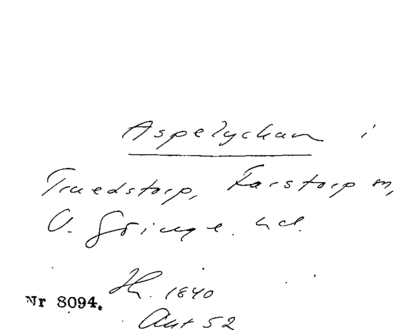 Aspelyckan i
Truedstorp, Farstorp m,
V. Göinge hd.
Jh. 1840
Nr 8094.
Akt 52